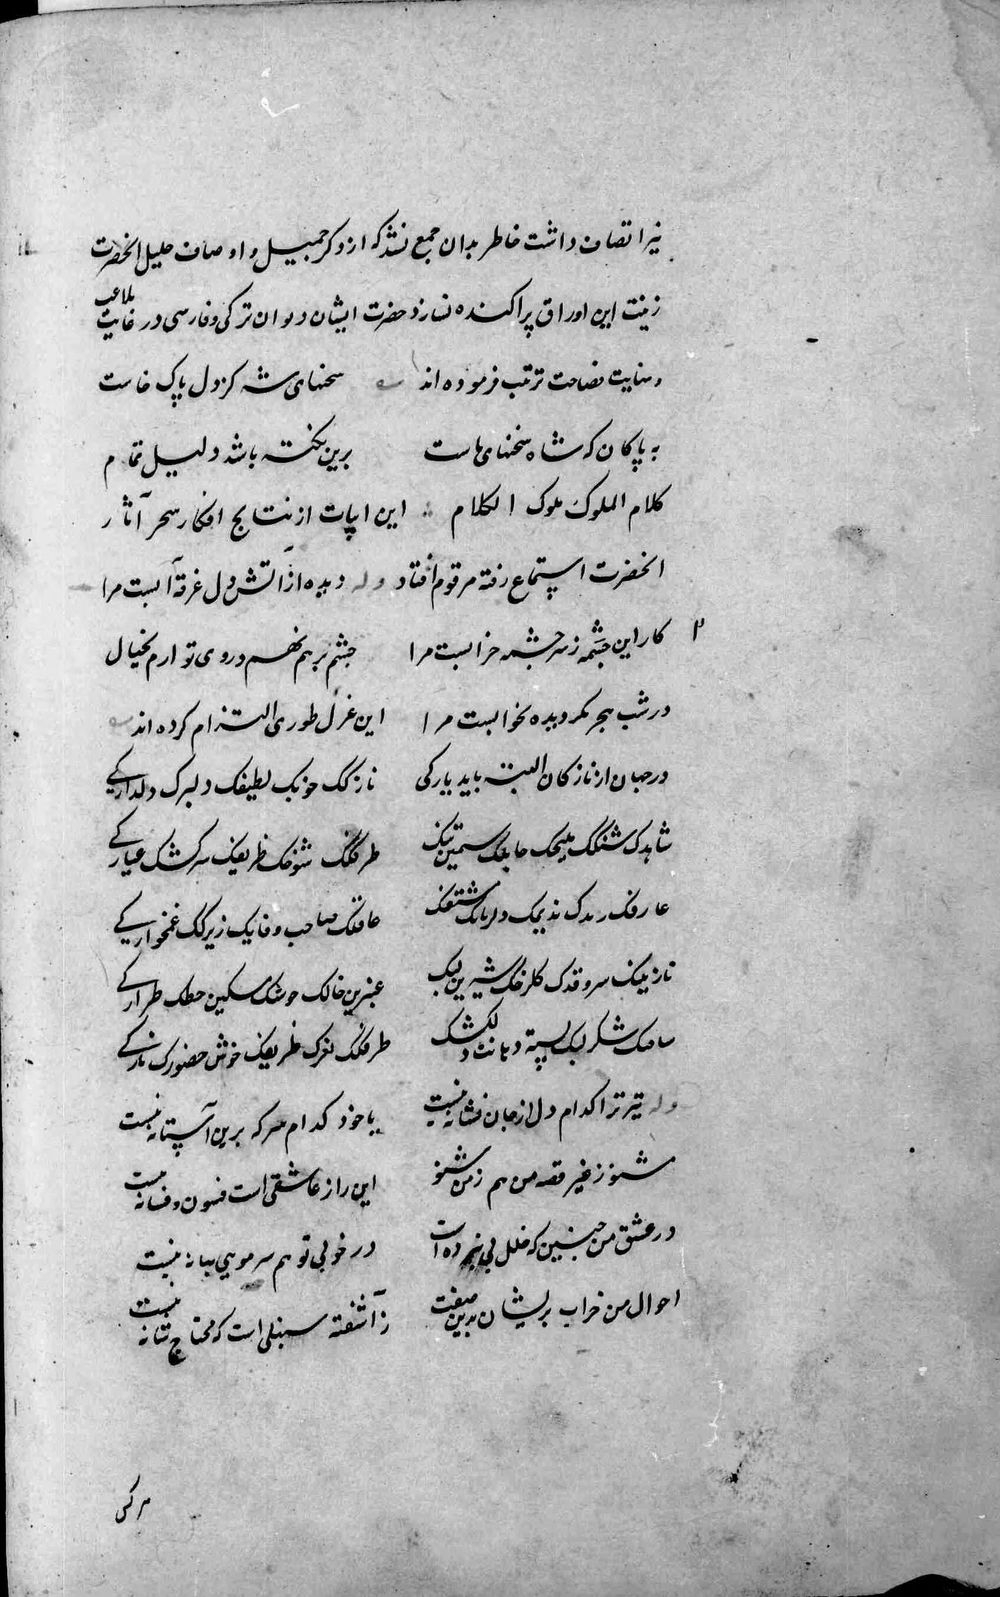 نیز اتصاف داشت خاطر بدان جمع نشد که از ذکر جمیل و اوصاف جلیل آنحضرت
زینت این اوراق پراکنده نسازد حضرت ایشان دیوان ترکی و فارسی در غایت بلاغت
و نهایت فصاحت ترتیب فرموده اند سخنهای شه کز دل پاک خاست
به پاکان که شاه سخنهای ماست برین نکته باشد دلیل تمام
کلام الملوک ملوک الکلام این ابیات از نتایج افکار سحر آثار
آنحضرت استماع رفته مرقوم افتاد وله دیده از آتش دل غرقه آبست مرا
کار این چشمه ز سرچشمه خرابست مرا چشم بر هم نهم و روی تو آرم بخیال
در شب هجر مگر دیده بخوابست مرا این غزل طوری التزام کرده اند
در جهان از نازکان البته باید یارکی نازکک خوبک لطیفک دلبرک دلدارکی
شاهدک شنگک ملیحک چابکک سیمین تنک طرفکک شوخک ظریفک سرکشک عیارکی
عارفک رندک ندیمک دلربایک مشفقک عاقلک صاحب وفایک زیرکک غمخوارکی
نازنینک سروقدک گلرخک شیرین لبک عنبرین خالک خوشک مسکین خطک طرارکی
شکر لبک پسته دهانک دلکشک طرفکک نغزک ظریفک خوش حضورک
وله تیر ترا کدام دل از جان نشانه نیست یا خود کدام سر که برین آستانه نیست
مشنو ز غیر قصه من هم ز من شنو این راز عاشقی است فسون و فسانه نیست
در عشق من چنین که خلل پی نبرده است در خوبی تو هم سر مویی بهانه نیست
احوال من خراب پریشان بدین صفت ز آشفته سنبلی است که محتاج شانه نیست